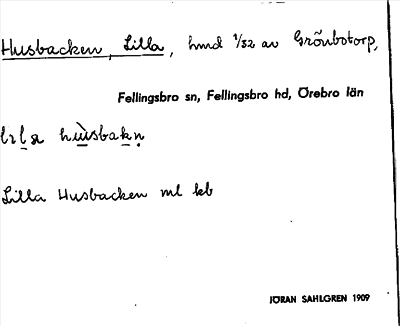 Husbacken, Lilla, hmd 1/32 av Grönbotorp,
Fellingsbro sn, Fellingsbro hd, Örebro län
Lilla Husbacken ml kb
JÖRAN SAHLGREN 1909